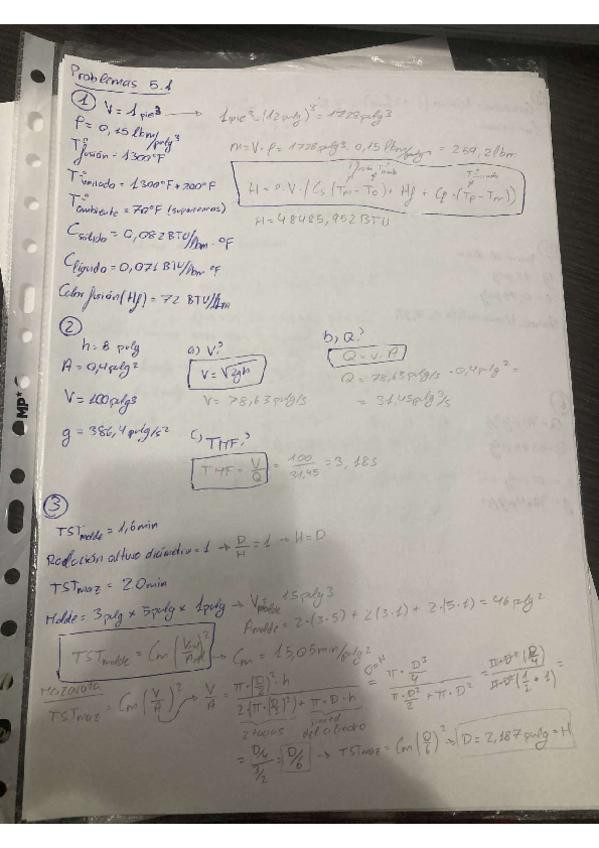 Problemas 5.1
① V = 1 pie³ → 1 pie³ · (12 pulg)³ = 1728 pulg³
ρ = 0,15 lbm/pulg³
m = V · ρ = 1728 pulg³ · 0,15 lbm/pulg³ = 259,2 lbm
T fusión = 1300°F
T vaciado = 1300°F + 200°F
H = ρ · V · (Cs (Tm - To) + Hf + Cl · (Tp - Tm))
T ambiente = 70°F (suponemos)
H = 48485,952 BTU
C sólido = 0,082 BTU/lbm · °F
C líquido = 0,071 BTU/lbm °F
Calor fusión (Hf) = 72 BTU/lbm
②
h = 8 pulg
A = 0,4 pulg²
V = 100 pulg³
g = 386,4 pulg/s²
a) V?
V = √2gh
V = 78,63 pulg/s
b) Q?
Q = v · A
Q = 78,63 pulg/s · 0,4 pulg² =
= 31,45 pulg³/s
c) TMF?
TMF = V/Q = 100/31,45 = 3,18 s
③
TST molde = 1,6 min
Relación altura diámetro = 1 → D/H = 1 → H = D
TST maz = 2.0 min
Molde = 3 pulg × 5 pulg × 1 pulg → V molde = 15 pulg³
A molde = 2 · (3 · 5) + 2 (3 · 1) + 2 · (5 · 1) = 46 pulg²
TST molde = Cm (V/A)² → Cm = 15,05 min/pulg²
Mazarota
TST maz = Cm (V/A)² V/A = π · (D/2)² · h / 2(π · (D/2)²) + π · D · h = D=H π · D³/4 / π · D²/2 + π · D² = π · D² (D/4) / π · D² (1/2 + 1) =
2 tapas pared del cilindro
= D/4 / 3/2 = D/6 → TST maz = Cm (D/6)² → D = 2,187 pulg = H
MP